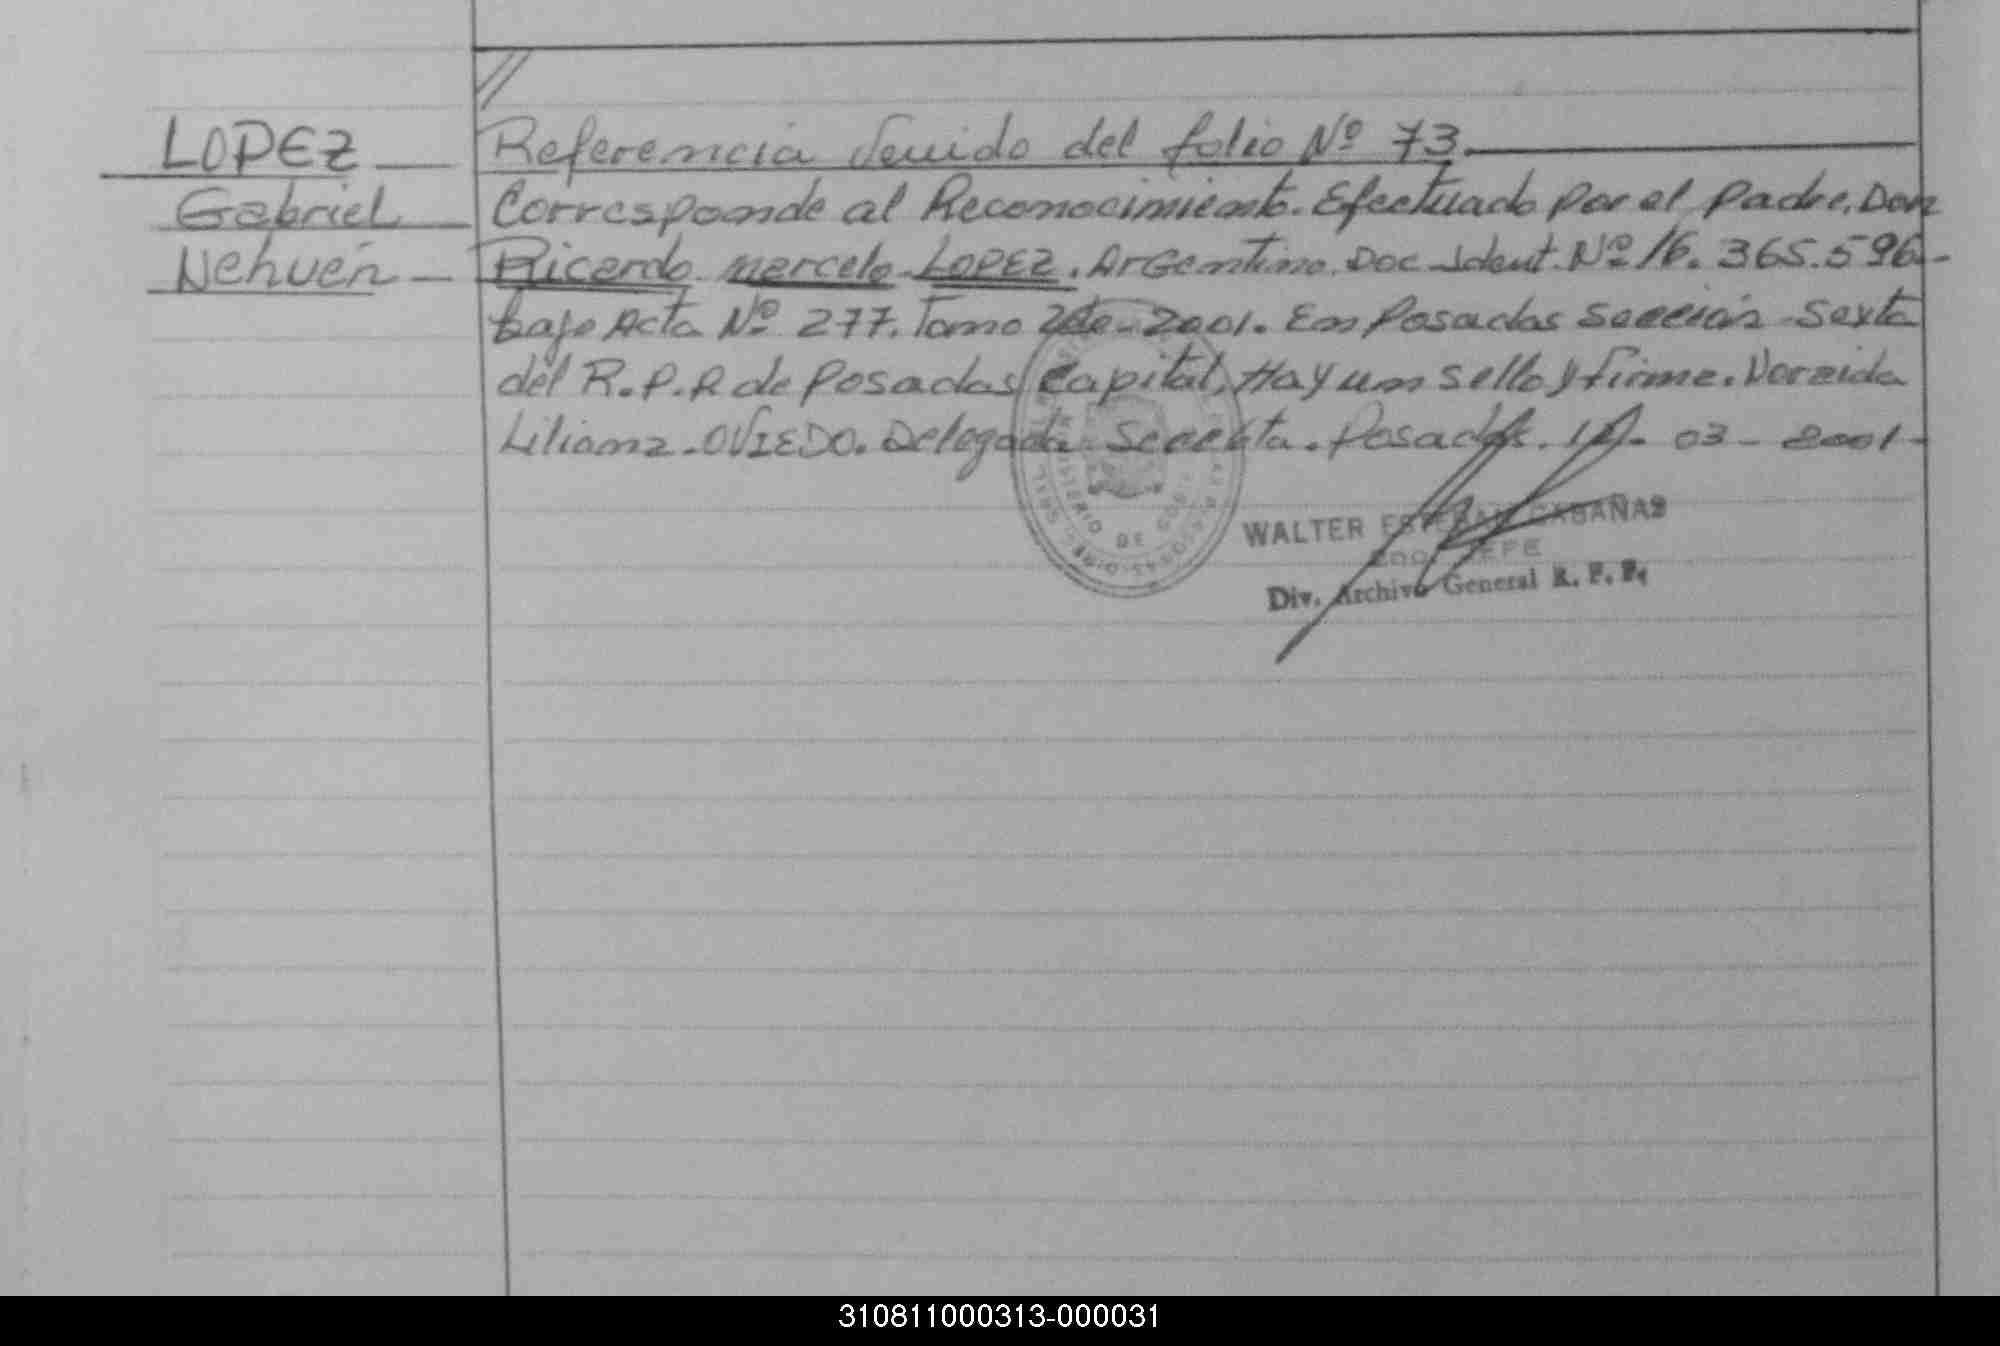 LOPEZ
Gabriel
Nehuén
Referencia Venido del folio Nº 73.
Corresponde al Reconocimiento. Efectuado por el padre. Don
Ricardo marcelo LOPEZ. Argentino. Doc Ident. Nº 16.365.596-
bajo Acta Nº 277. Tomo 2do-2001. En Posadas Sección Sexta
del R.P.P. de Posadas Capital, Hay un sello y firma.
Liliana OVIEDO. Delegada Posadas. 03-2001-
WALTER ESTEBAN CABAÑAS
JEFE
Div. Archivo General R. P. P.
MINISTERIO DE GOB
310811000313-000031